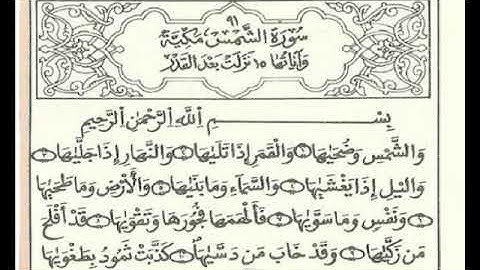 ٩١
سُورَةُ الشَّمْسِ مَكِّيَّةٌ
وَآيَاتُهَا ١٥ نَزَلَتْ بَعْدَ الْقَدْرِ
بِسْمِ اللَّهِ الرَّحْمَٰنِ الرَّحِيمِ
وَالشَّمْسِ وَضُحَىٰهَا ۝١ وَالْقَمَرِ إِذَا تَلَىٰهَا ۝٢ وَالنَّهَارِ إِذَا جَلَّىٰهَا ۝٣
وَالَّيْلِ إِذَا يَغْشَىٰهَا ۝٤ وَالسَّمَاءِ وَمَا بَنَىٰهَا ۝٥ وَالْأَرْضِ وَمَا طَحَىٰهَا
۝٦ وَنَفْسٍ وَمَا سَوَّىٰهَا ۝٧ فَأَلْهَمَهَا فُجُورَهَا وَتَقْوَىٰهَا ۝٨ قَدْ أَفْلَحَ
مَن زَكَّىٰهَا ۝٩ وَقَدْ خَابَ مَن دَسَّىٰهَا ۝١٠ كَذَّبَتْ ثَمُودُ بِطَغْوَىٰهَا